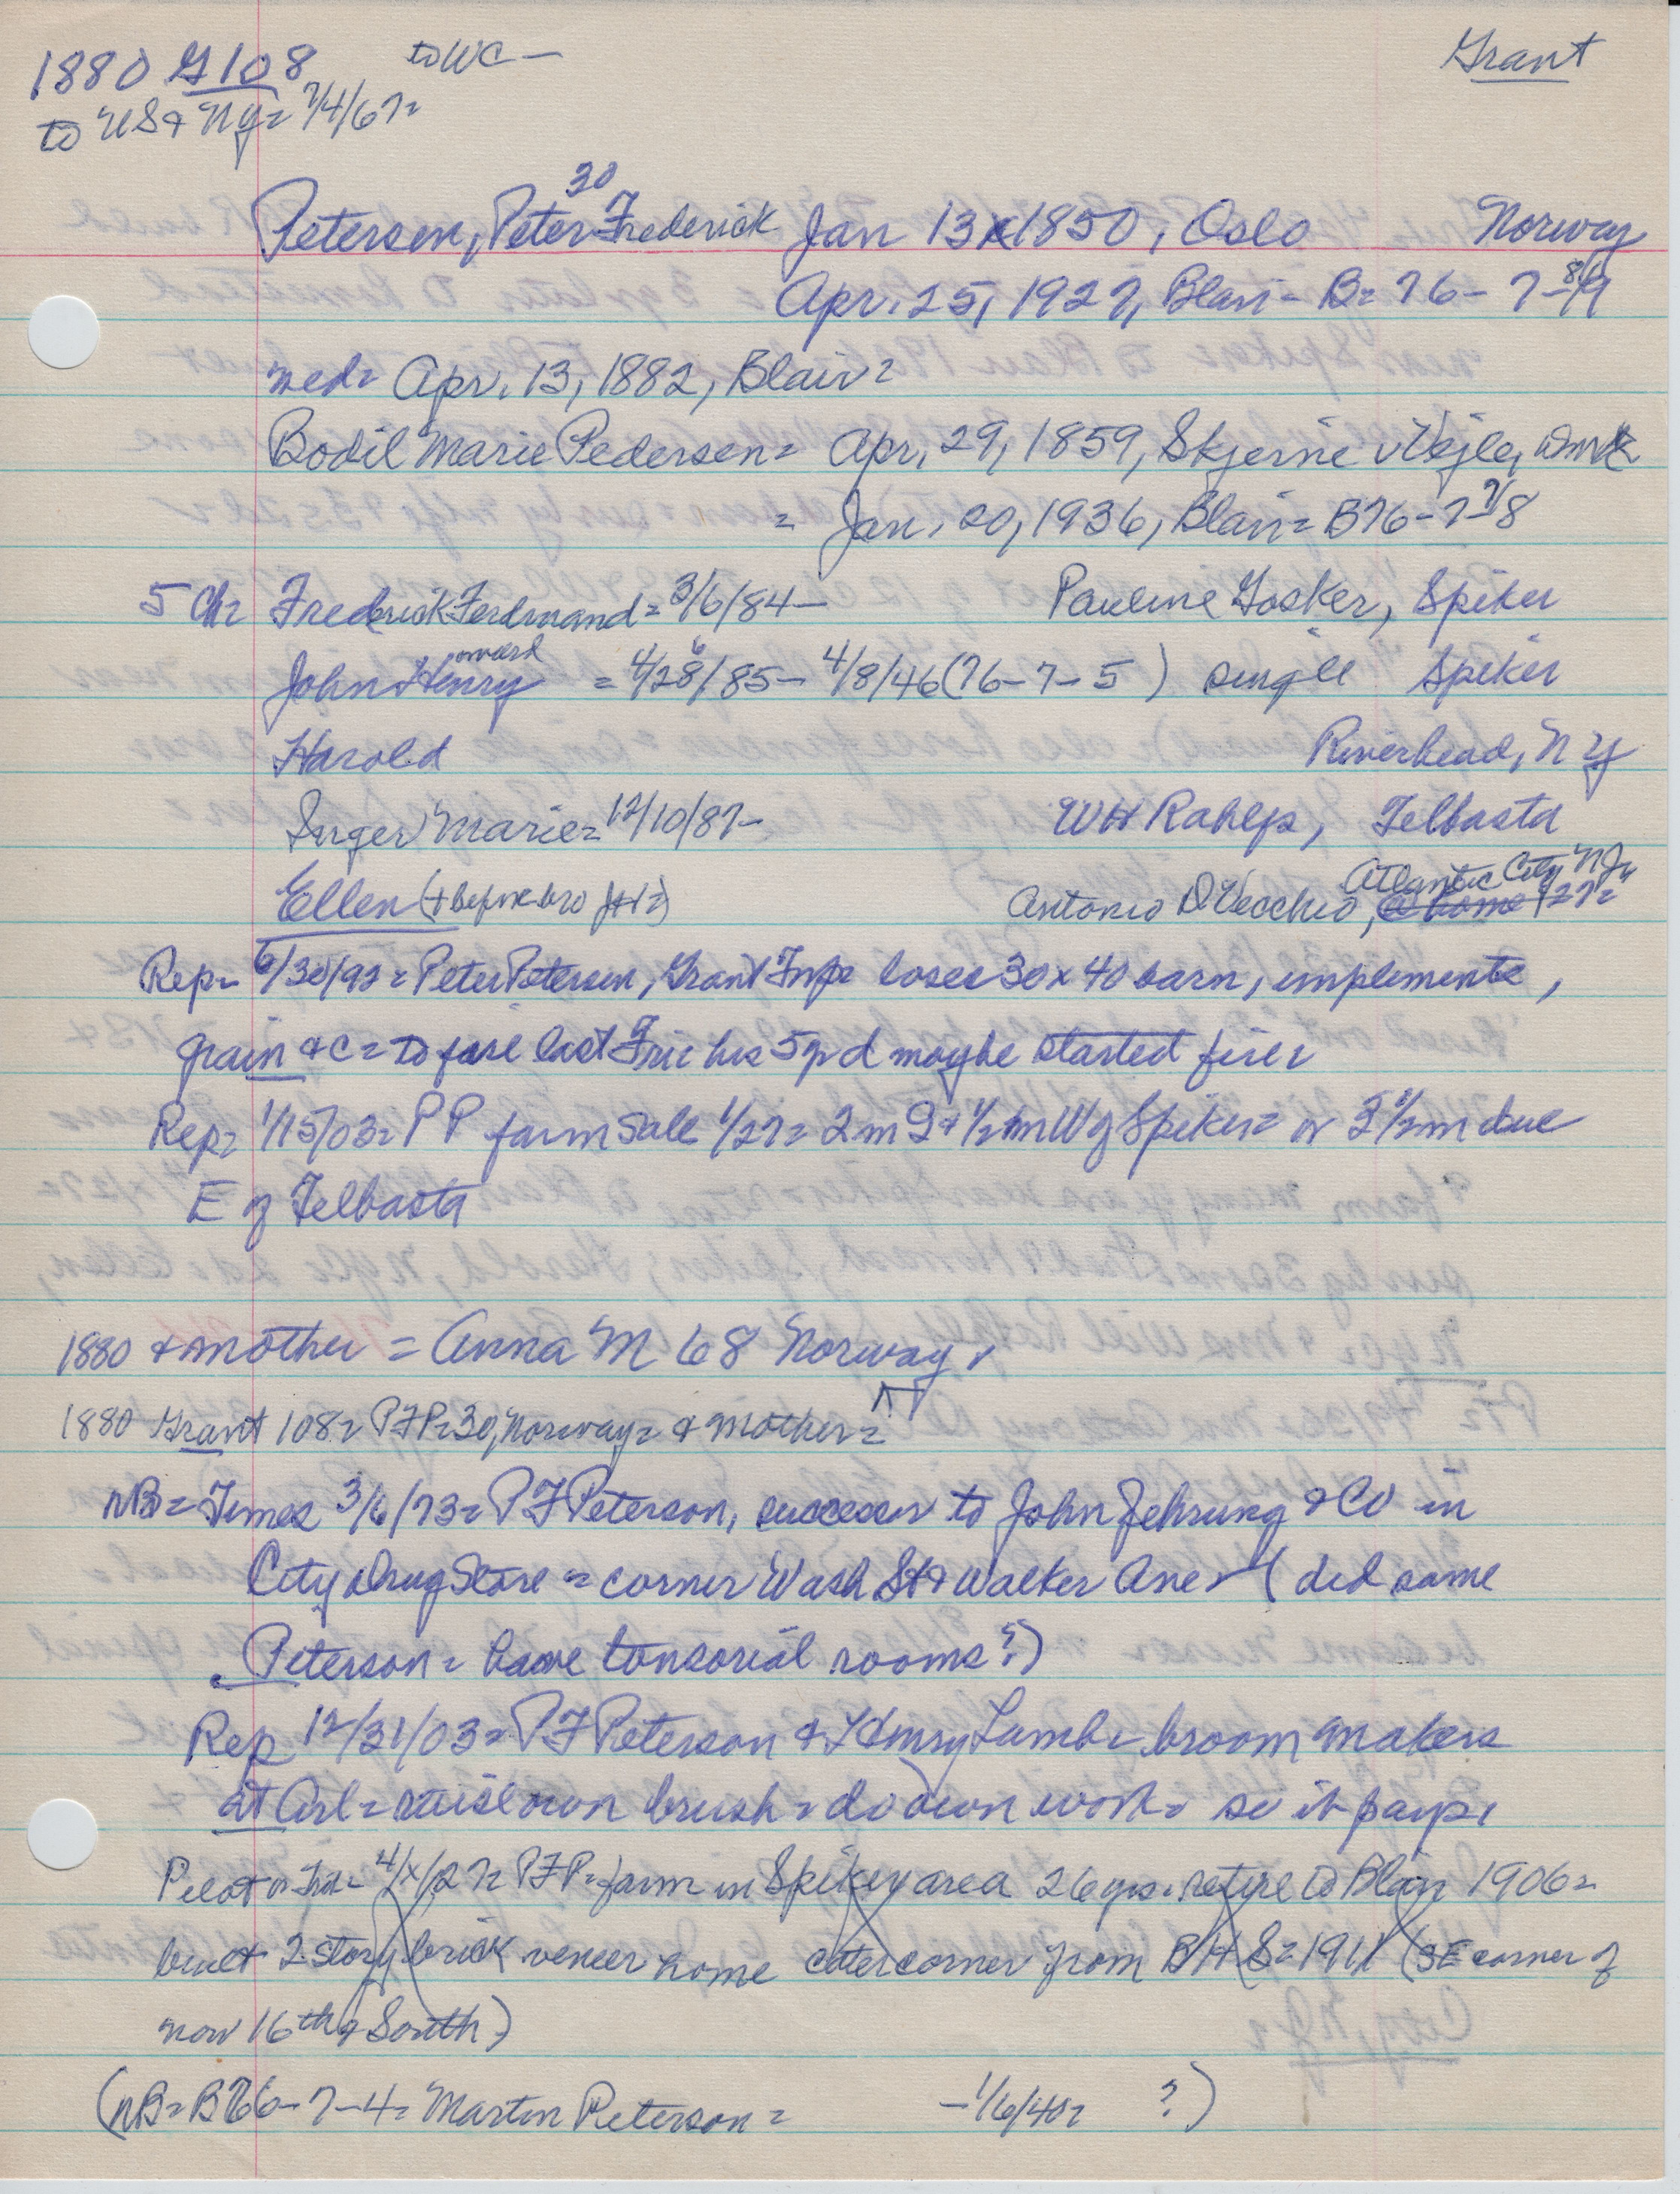 1880 G108 to WC — Grant
to US & Ny = 7/4/67=
30
Petersen, Peter Frederick Jan 13 x 1850, Oslo Norway
Apr. 25, 1927, Blair - B= 76-7-8/9
med= Apr. 13, 1882, Blair=
Bodil Marie Pedersen= Apr. 29, 1859, Skjerne Vejle, Dmk
= Jan. 20, 1936, Blair= B76-7-7/8
5 Ch= Frederick Ferdinand= 3/6/84— Pauline Gosker, Spiker
oward
John Henry = 4/28/85— 4/8/46 (76-7-5) single Spiker
Harold Riverhead, NY
Inger Marie= 12/10/87— WH Rahlfs, Telbasta
Atlantic City NJ
Ellen (+ before bro JH=) Antonio D'Vecchio, @ home 4/27=
Rep= 6/30/92= Peter Petersen, Grant Twp loses 30x40 barn, implements,
grain &c= to fire last Fri= his 5 yr d maybe started fire=
Rep= 1/15/03= PP farm sale 1/27= 2 m S & 1/2 m W of Spiker= or 3 1/2 m due
E of Telbasta
1880 & mother = Anna M 68 Norway
1880 Grant 108= PFP=30, Norway= & mother=
NB= Times 3/6/73= PF Peterson, successor to John Gehrung & Co in
City Drug Store = corner Wash St & Walker Ave = (did same
Peterson= have tonsorial rooms?)
Rep 12/31/03= PF Peterson & Henry Lamb= broom makers
at Arl= raise own brush= do own work= so it pays,
Pilot or Trib= 4/x/27= PFP= farm in Spiker area 26 yrs= retire to Blair 1906=
built 2-story brick veneer home catercorner from BHS=1911 (SE corner of
now 16th & South)
(NB= B76-7-4= Martin Peterson= —1/6/40= ?)